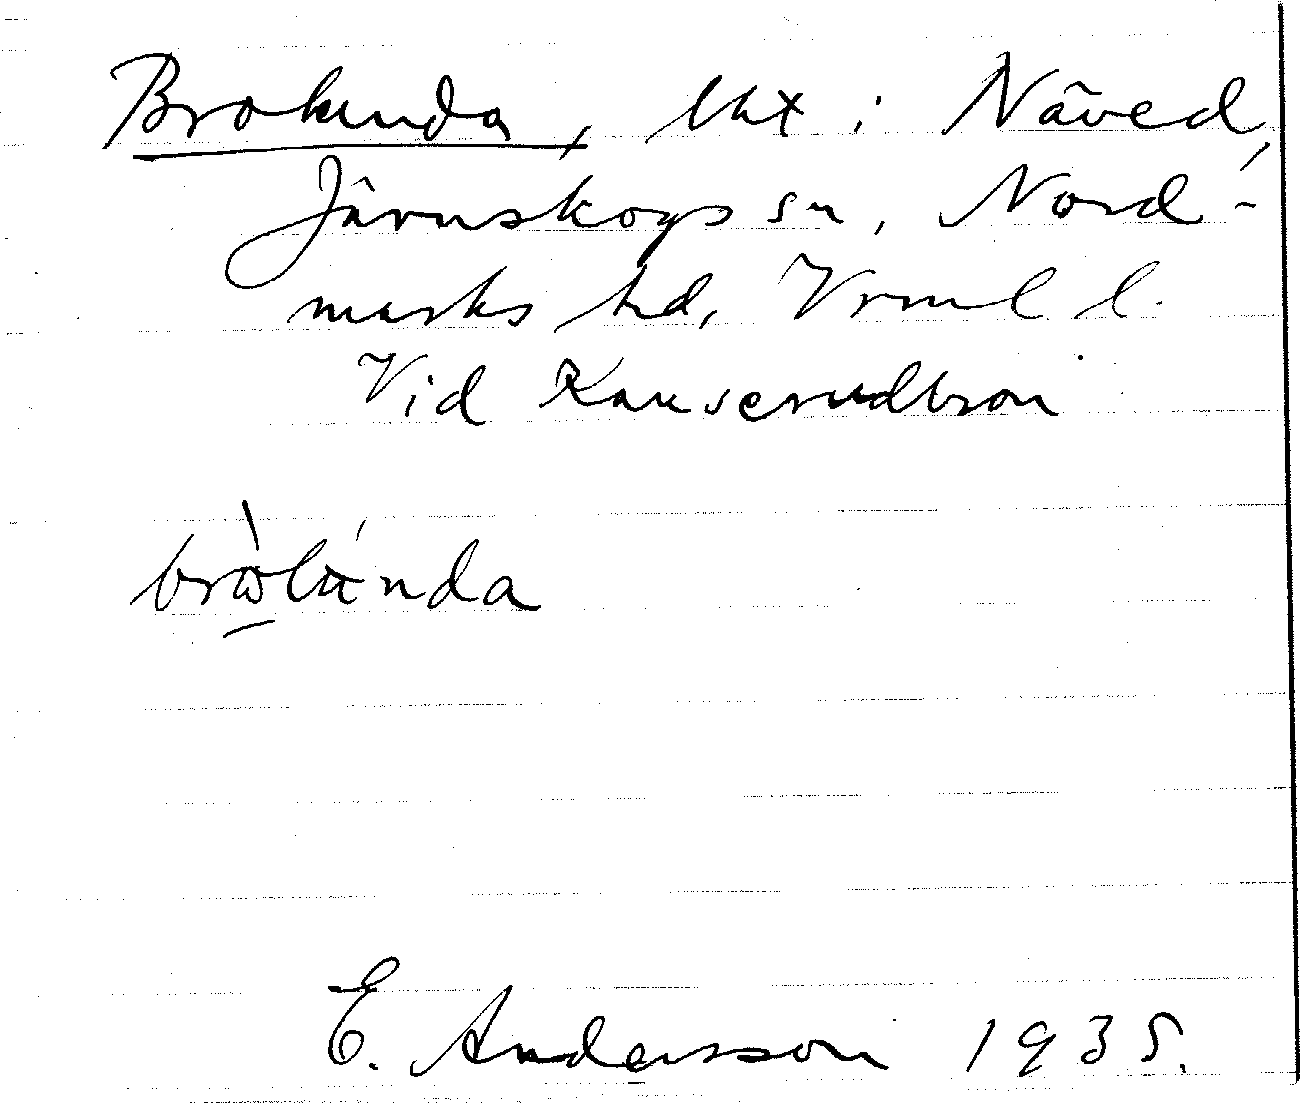 Brolunda, utx i Näved,
Järnskogs sn, Nord-
marks hd, Vrml l.
Vid Kanserudbron
brolunda
E. Andersson 1935.